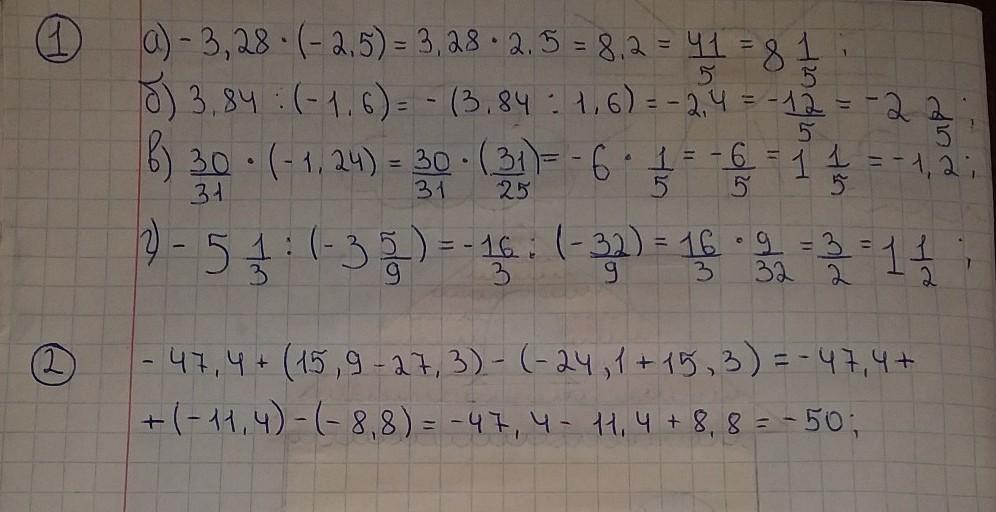 1 а) - 3,28 · (- 2,5) = 3,28 · 2,5 = 8,2 = 41/5 = 8 1/5 ;
б) 3,84 : (-1,6) = - (3,84 : 1,6) = -2,4 = -12/5 = -2 2/5 ;
в) 30/31 · (-1,24) = 30/31 · (31/25) = - 6 · 1/5 = -6/5 = 1 1/5 = -1,2 ;
г) - 5 1/3 : (- 3 5/9) = -16/3 : (-32/9) = 16/3 · 9/32 = 3/2 = 1 1/2 ;
2 - 47,4 + (15,9 - 27,3) - (-24,1 + 15,3) = - 47,4 +
+ (-11,4) - (- 8,8) = -47,4 - 11,4 + 8,8 = -50;